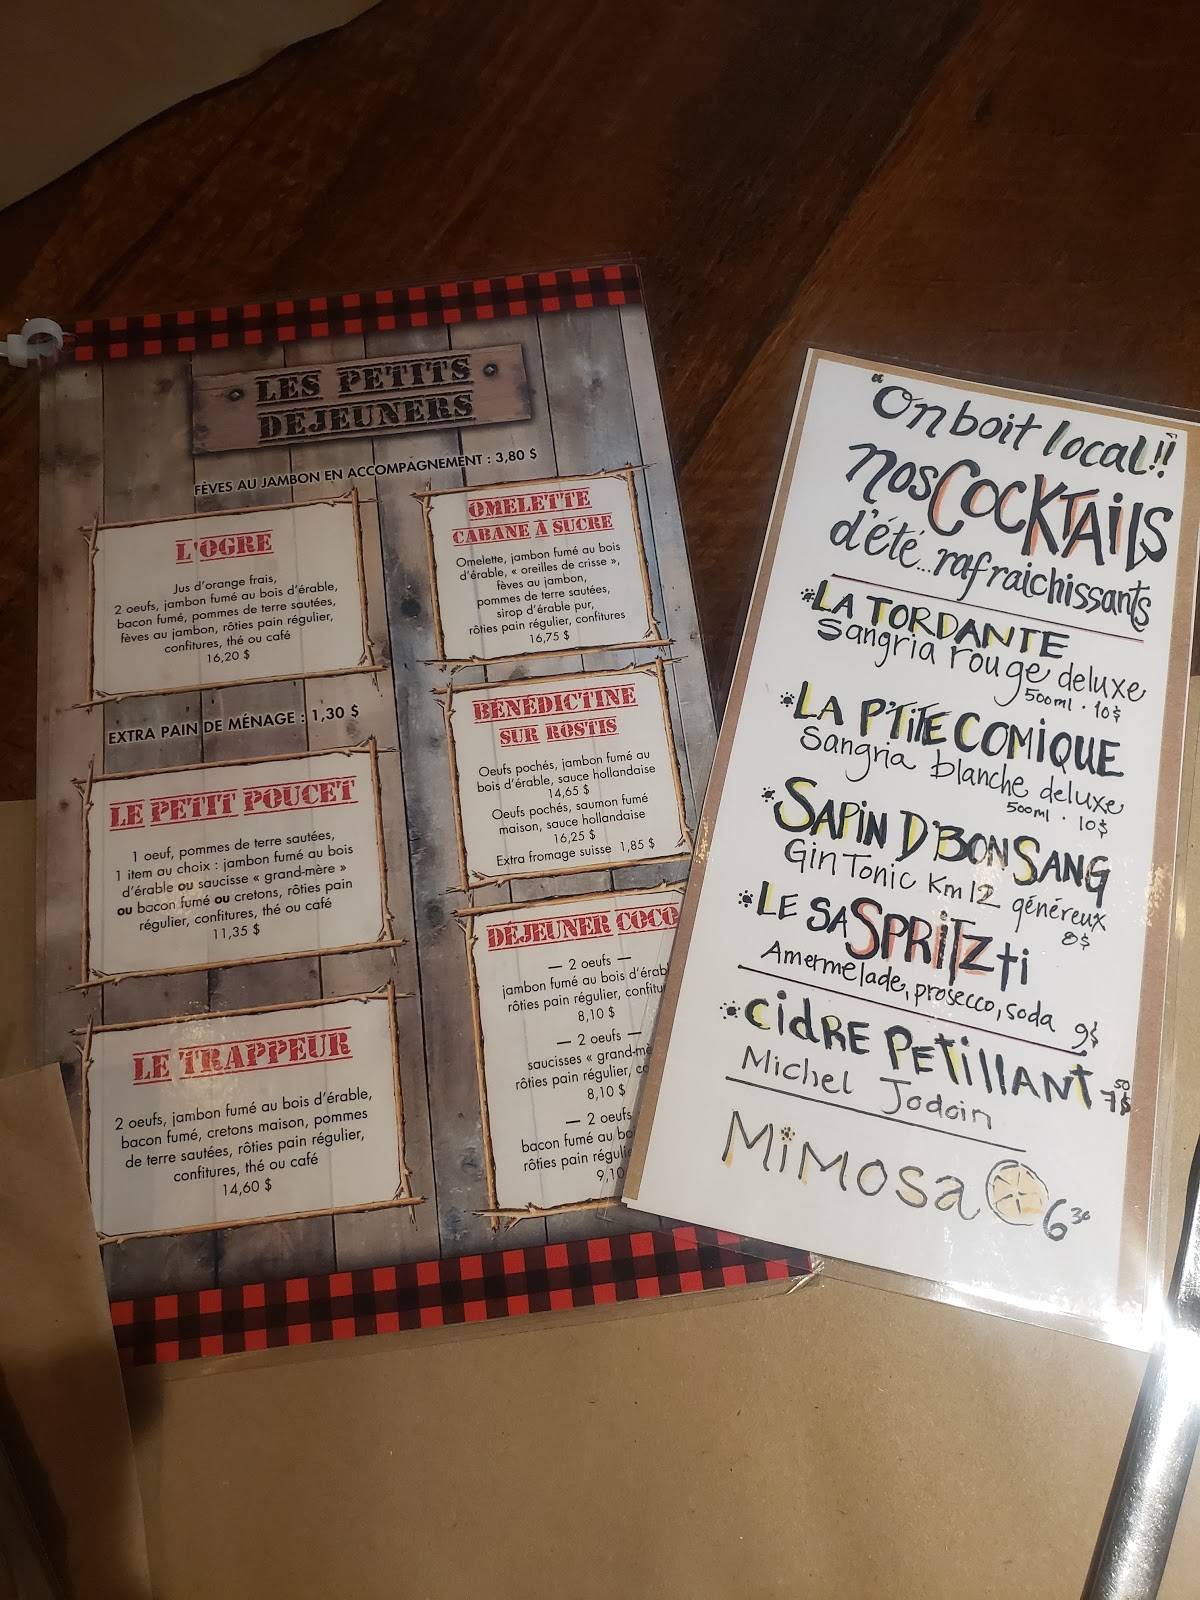 LES PETITS
DEJEUNERS
FÈVES AU JAMBON EN ACCOMPAGNEMENT : 3,80 $
L'OGRE
Jus d'orange frais,
2 oeufs, jambon fumé au bois d'érable,
bacon fumé, pommes de terre sautées,
fèves au jambon, rôties pain régulier,
confitures, thé ou café
16,20 $
EXTRA PAIN DE MÉNAGE : 1,30 $
LE PETIT POUCET
1 oeuf, pommes de terre sautées,
1 item au choix : jambon fumé au bois
d'érable ou saucisse « grand-mère »
ou bacon fumé ou cretons, rôties pain
régulier, confitures, thé ou café
11,35 $
LE TRAPPEUR
2 oeufs, jambon fumé au bois d'érable,
bacon fumé, cretons maison, pommes
de terre sautées, rôties pain régulier,
confitures, thé ou café
14,60 $
OMELETTE
CABANE À SUCRE
Omelette, jambon fumé au bois
d'érable, « oreilles de crisse »,
fèves au jambon,
pommes de terre sautées,
sirop d'érable pur,
rôties pain régulier, confitures
16,75 $
BÉNÉDICTINE
SUR RÖSTIS
Oeufs pochés, jambon fumé au
bois d'érable, sauce hollandaise
14,65 $
Oeufs pochés, saumon fumé
maison, sauce hollandaise
16,25 $
Extra fromage suisse 1,85 $
DÉJEUNER COCO
— 2 oeufs —
jambon fumé au bois d'érab
rôties pain régulier, confitu
8,10 $
— 2 oeufs —
saucisses « grand-mè
rôties pain régulier, co
8,10 $
— 2 oeufs
bacon fumé au bo
rôties pain régulie
9,10
"On boit local!!"
nos COCKTAILS
d'été...rafraichissants
LA TORDANTE
Sangria rouge deluxe
500ml · 10$
LA P'TITE COMIQUE
Sangria blanche deluxe
500ml · 10$
SAPIN D'BON SANG
Gin Tonic Km12 généreux
8$
LE SASPRITZti
Amermelade, prosecco, soda 9$
CIDRE PETILLANT 7 50 $
Michel Jodoin
MiMOSa 6 30